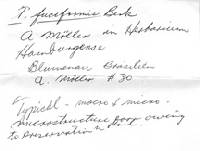 T. fuciformis Berk
A Möller in Herbarium
Hamburgense
Blumenau Brasilien
A. Möller #30
Typical - macro & micro -
microstructure poor owing
to preservation